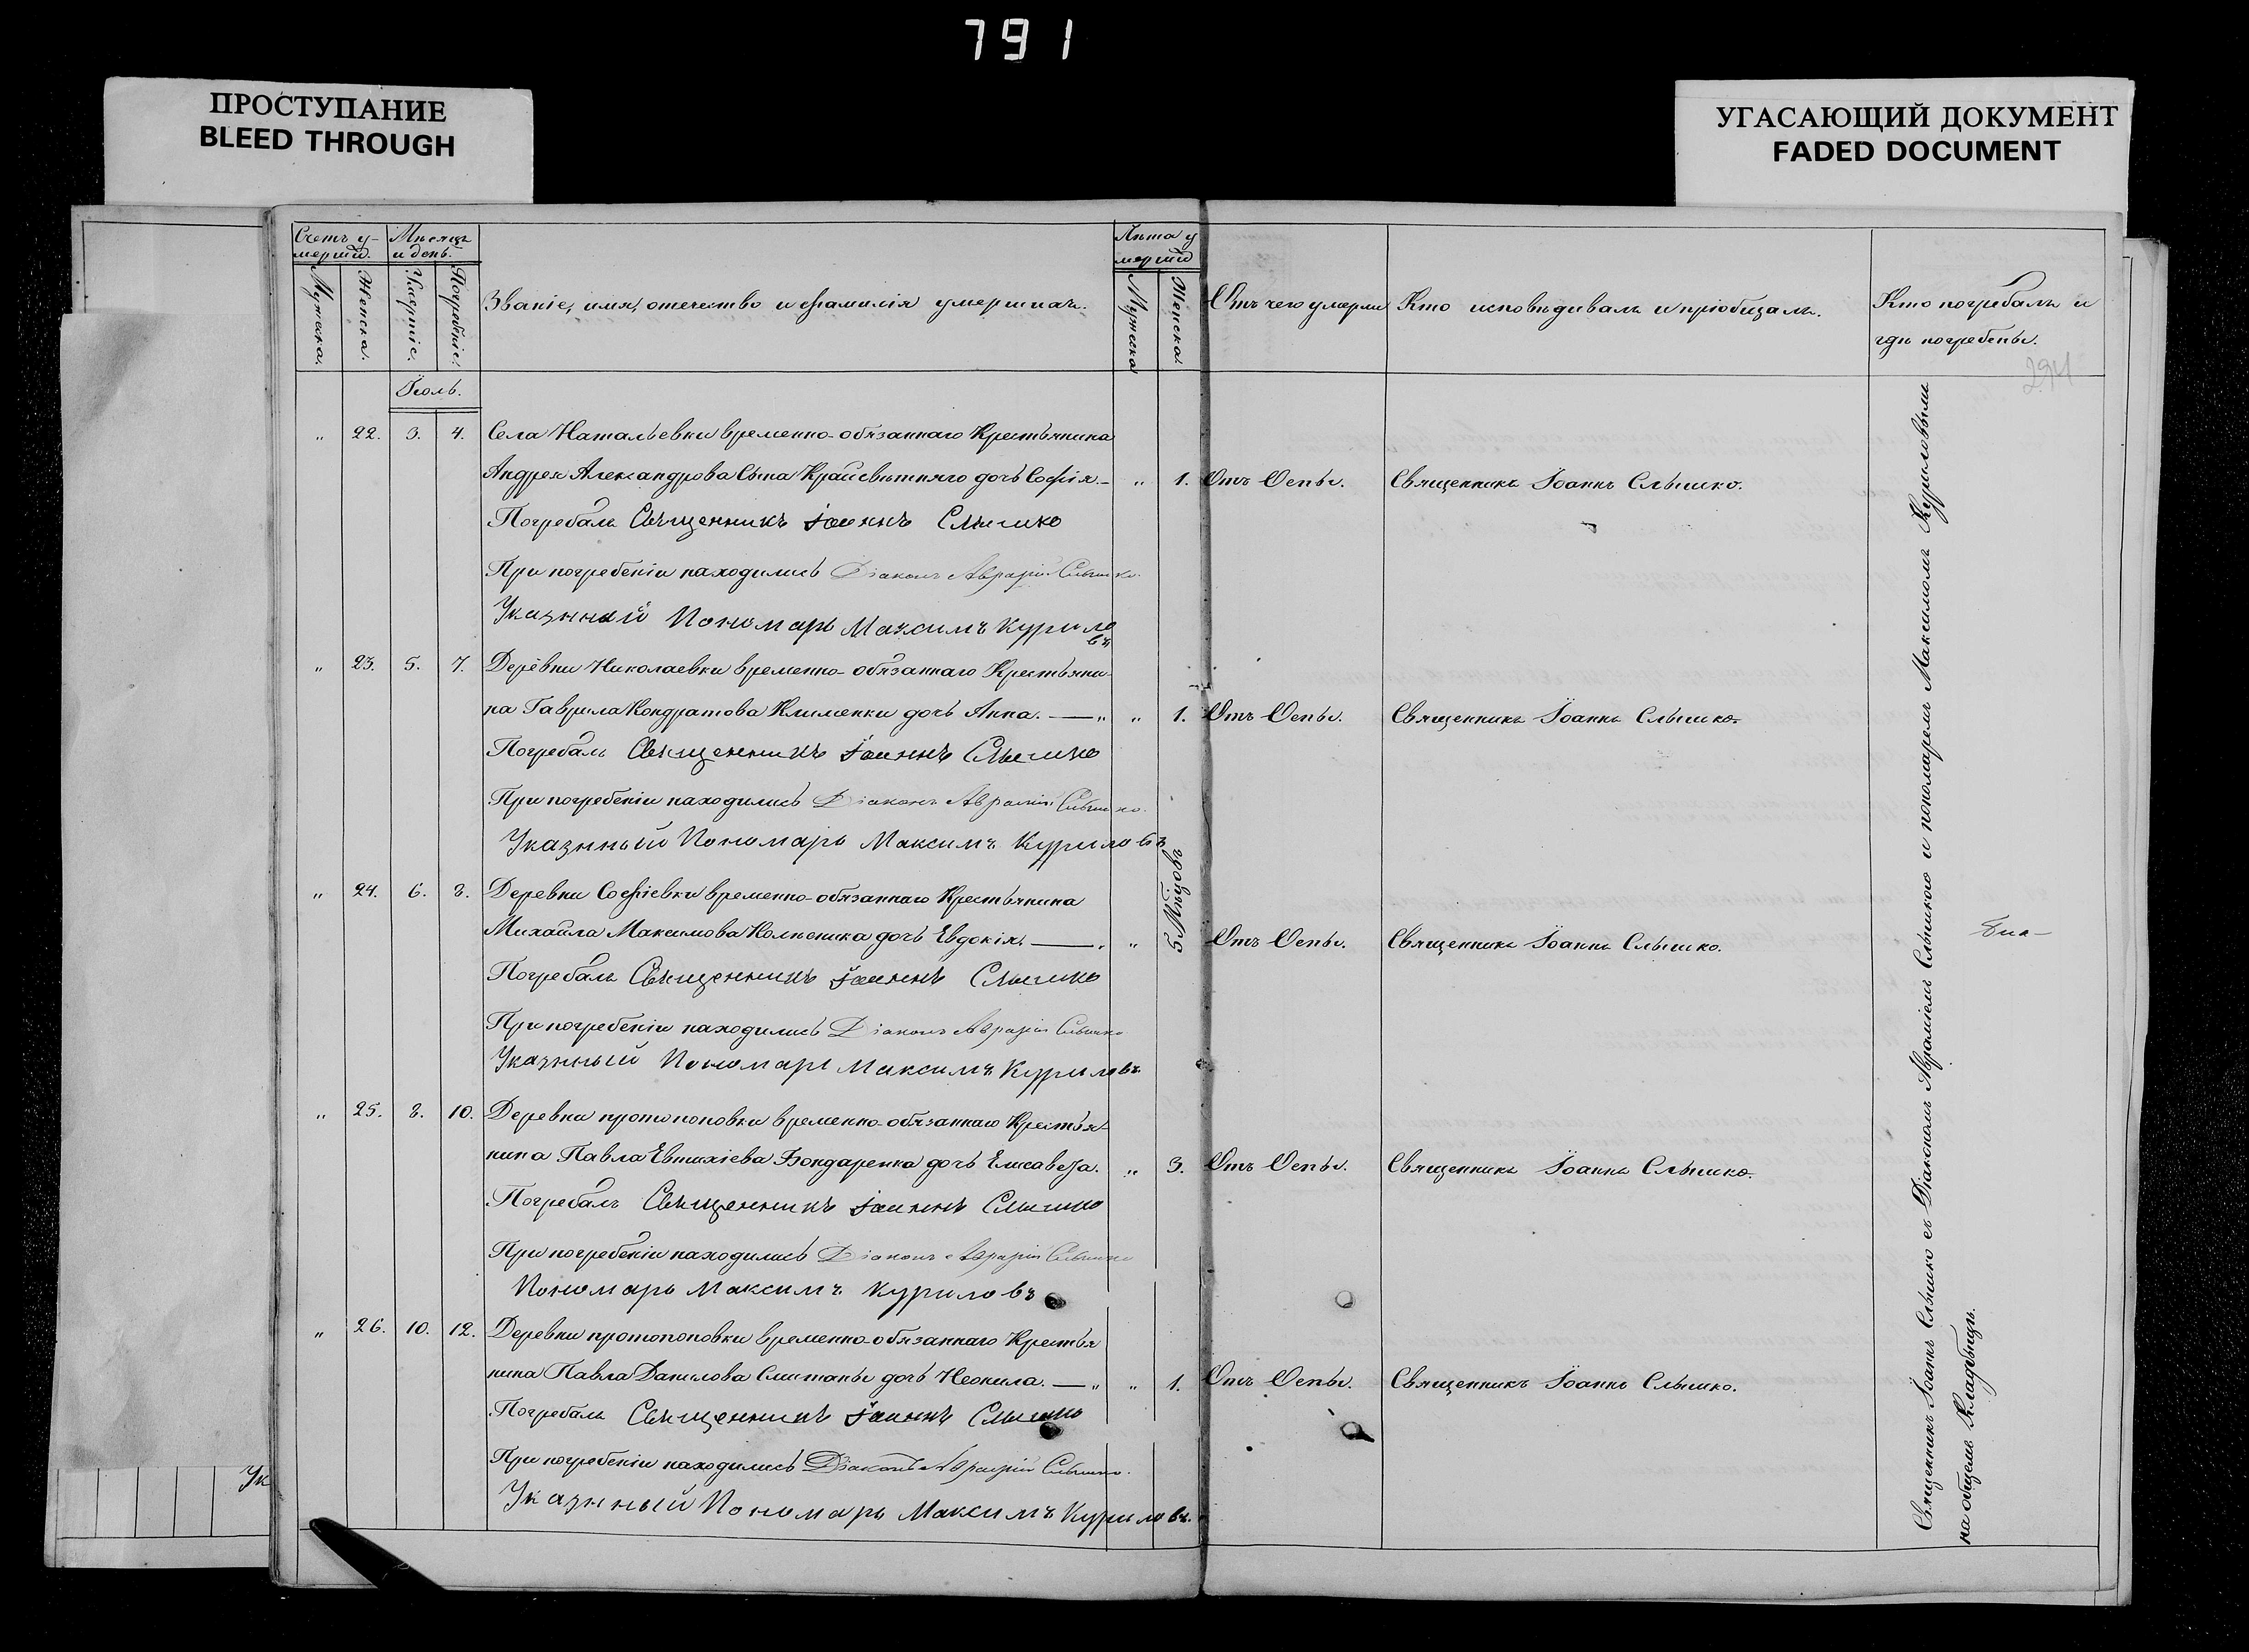 791
ПРОСТУПАНИЕ
BLEED THROUGH
УГАСАЮЩИЙ ДОКУМЕНТ
FADED DOCUMENT
Счетъ у-
мершихъ.
Мѣсяцъ
и день.
Мужеска.
Женска.
Умертіе.
Погребеніе.
Званіе, имя, отечество и фамилія умершихъ.
Лѣта у
мерших
Мужеска
Женска.
Отъ чего умерли
Кто исповѣдывалъ и пріобщалъ.
Кто погребалъ и
гдѣ погребены.
294
Іюль.
„ 22. 3. 4. Села Натальевки временно-обязаннаго Крестьянина
Андрея Александрова Сына Крайсвѣтняго дочь Софія. „ 1. Отъ Оспы. Священникъ Іоаннъ Слышко.
Погребалъ Священникъ Іоаннъ Слышко
При погребеніи находились Діаконъ Аврамій Слышко.
Указнный Пономарь Максимъ Курило
въ
„ 23. 5. 7. Деревни Николаевки временно-обязаннаго Крестьяни-
на Гаврила Кондратова Клименки дочь Анна. — „ „ 1. Отъ Оспы. Священникъ Іоаннъ Слышко.
Погребалъ Священникъ Іоаннъ Слышко
При погребеніи находились Діаконъ Аврамій Слышко.
Указнный Пономарь Максимъ Куриловъ
„ 24. 6. 8. Деревни Софіевки временно-обязаннаго Крестьянина
Михаила Максимова Колесника дочь Евдокія. — „ „ 5 Мѣсцовъ Отъ Оспы. Священникъ Іоаннъ Слышко.
Погребалъ Священникъ Іоаннъ Слышко
При погребеніи находились Діаконъ Аврамій Слышко
Указнный Пономарь Максимъ Куриловъ.
„ 25. 8. 10. Деревни протопоповки временно-обязаннаго Крестья-
нина Павла Евтихіева Бондаренка дочь Елисавета. „ 3. Отъ Оспы. Священникъ Іоаннъ Слышко.
Погребалъ Священникъ Іоаннъ Слышко
При погребеніи находились Діаконъ Аврамій Слышко
Пономарь Максимъ Куриловъ
„ 26. 10. 12. Деревни протопоповки временно-обязаннаго Крестья
нина Павла Данилова Смитаны дочь Неонила. — „ „ 1. Отъ Оспы. Священникъ Іоаннъ Слышко.
Погребалъ Священникъ Іоаннъ Слышко
При погребеніи находились Діаконъ Аврамій Слышко.
Указнный Пономарь Максимъ Куриловъ.
Священникъ Іоаннъ Слышко съ Діакономъ Авраміемъ Слышкою и пономаремъ Максимомъ Куриловымъ
на общемъ Кладбищѣ.
Ук